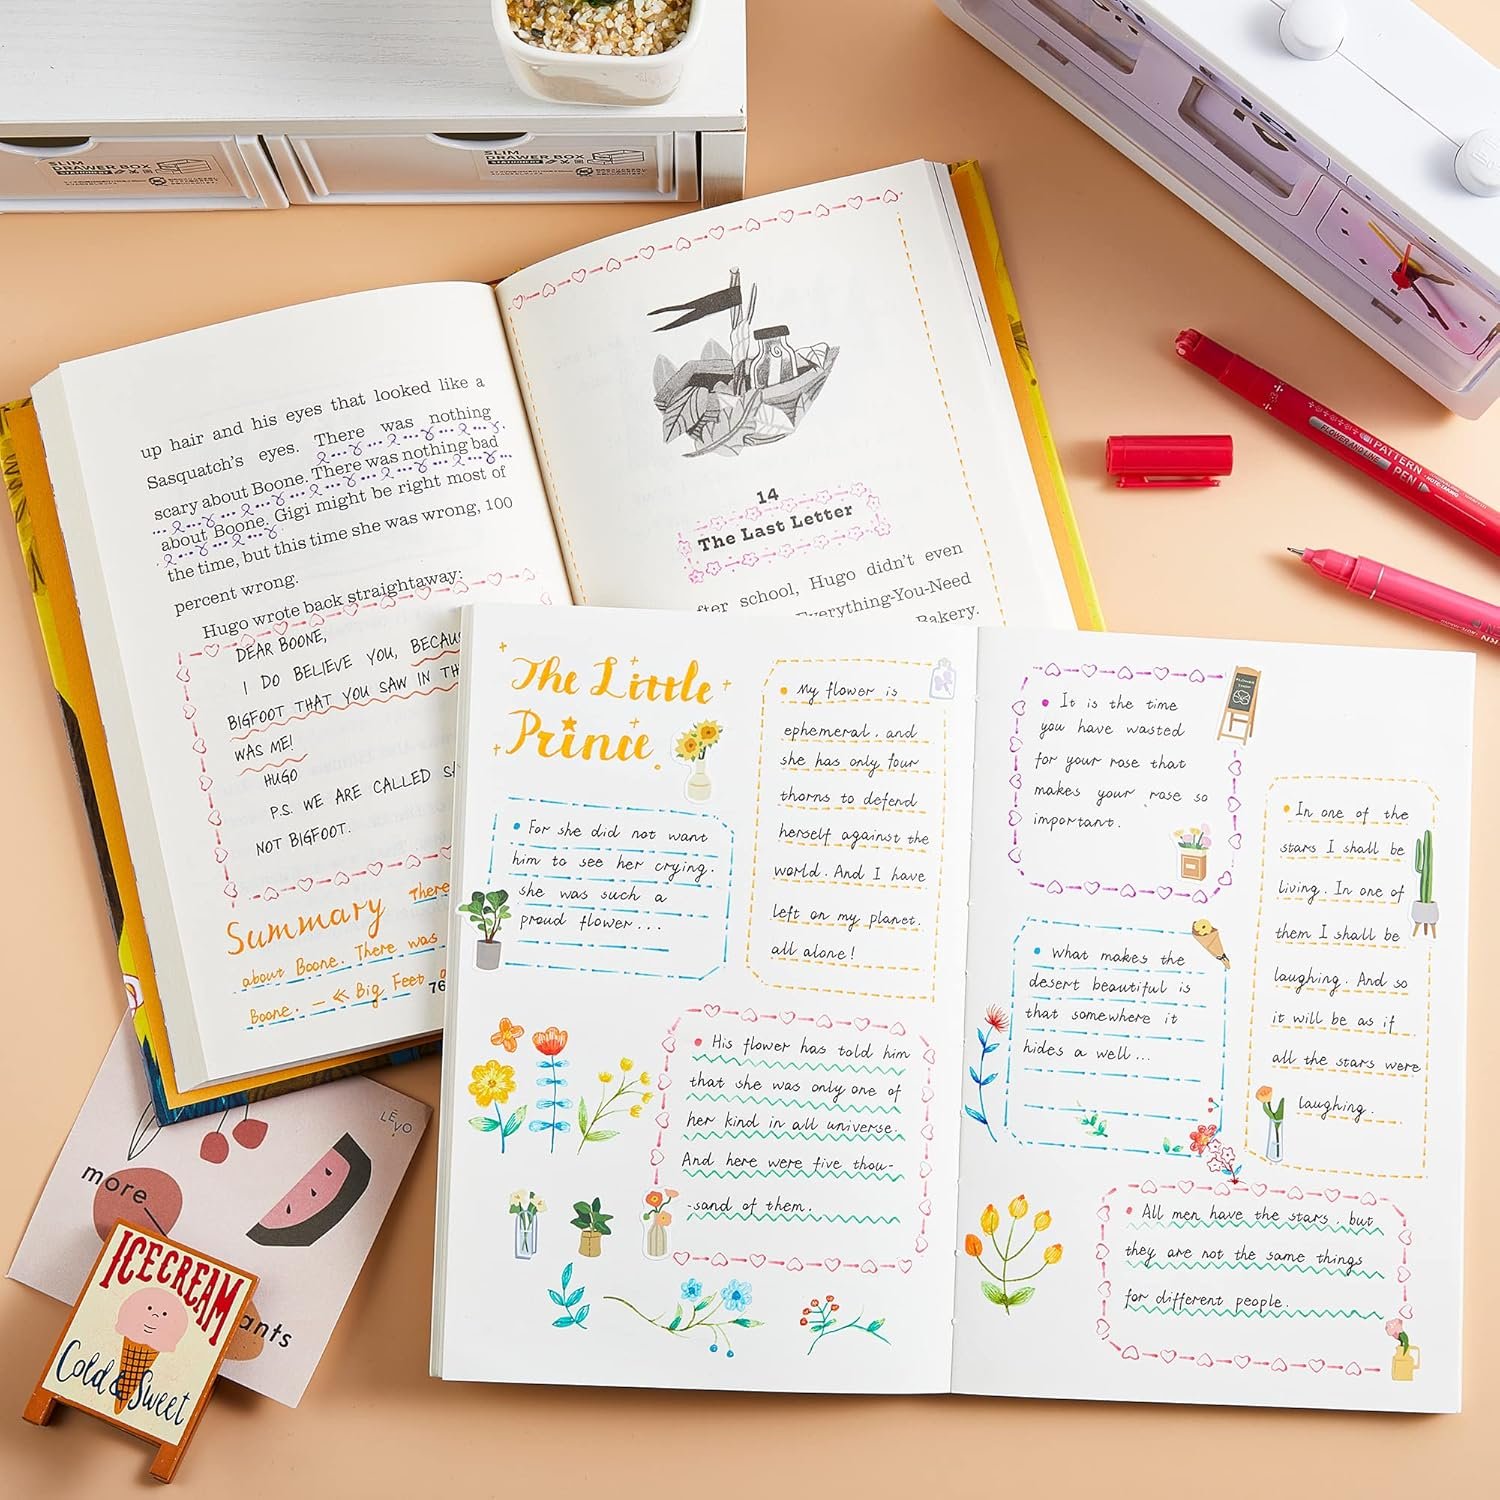 SLIM
DRAWER BOX
SLIM
DRAWER BOX
up hair and his eyes that looked like a
Sasquatch's eyes. There was nothing
scary about Boone. There was nothing bad
about Boone. Gigi might be right most of
the time, but this time she was wrong, 100
percent wrong.
Hugo wrote back straightaway:
DEAR BOONE,
I DO BELIEVE YOU,
BIGFOOT THAT YOU SAW IN
WAS ME!
HUGO
P.S. WE ARE CALLED
NOT BIGFOOT.
Summary There
about Boone. There was
Boone. — ≪ Big Feet
76
14
The Last Letter
school, Hugo didn't even
Everything-You-Need
Bakery.
PATTERN
PEN
FLOWER AND LINE
The Little
Prince
For she did not want
him to see her crying.
she was such a
proud flower...
My flower is
ephemeral. and
she has only four
thorns to defend
herself against the
world. And I have
left on my planet.
all alone!
His flower has told him
that she was only one of
her kind in all universe.
And here were five thou-
-sand of them.
It is the time
you have wasted
for your rose that
makes your rose so
important.
what makes the
desert beautiful is
that somewhere it
hides a well...
In one of the
stars I shall be
living. In one of
them I shall be
laughing. And so
it will be as if
all the stars were
laughing.
All men have the stars. but
they are not the same things
for different people.
LEVO
more
ants
ICECREAM
Cold & Sweet